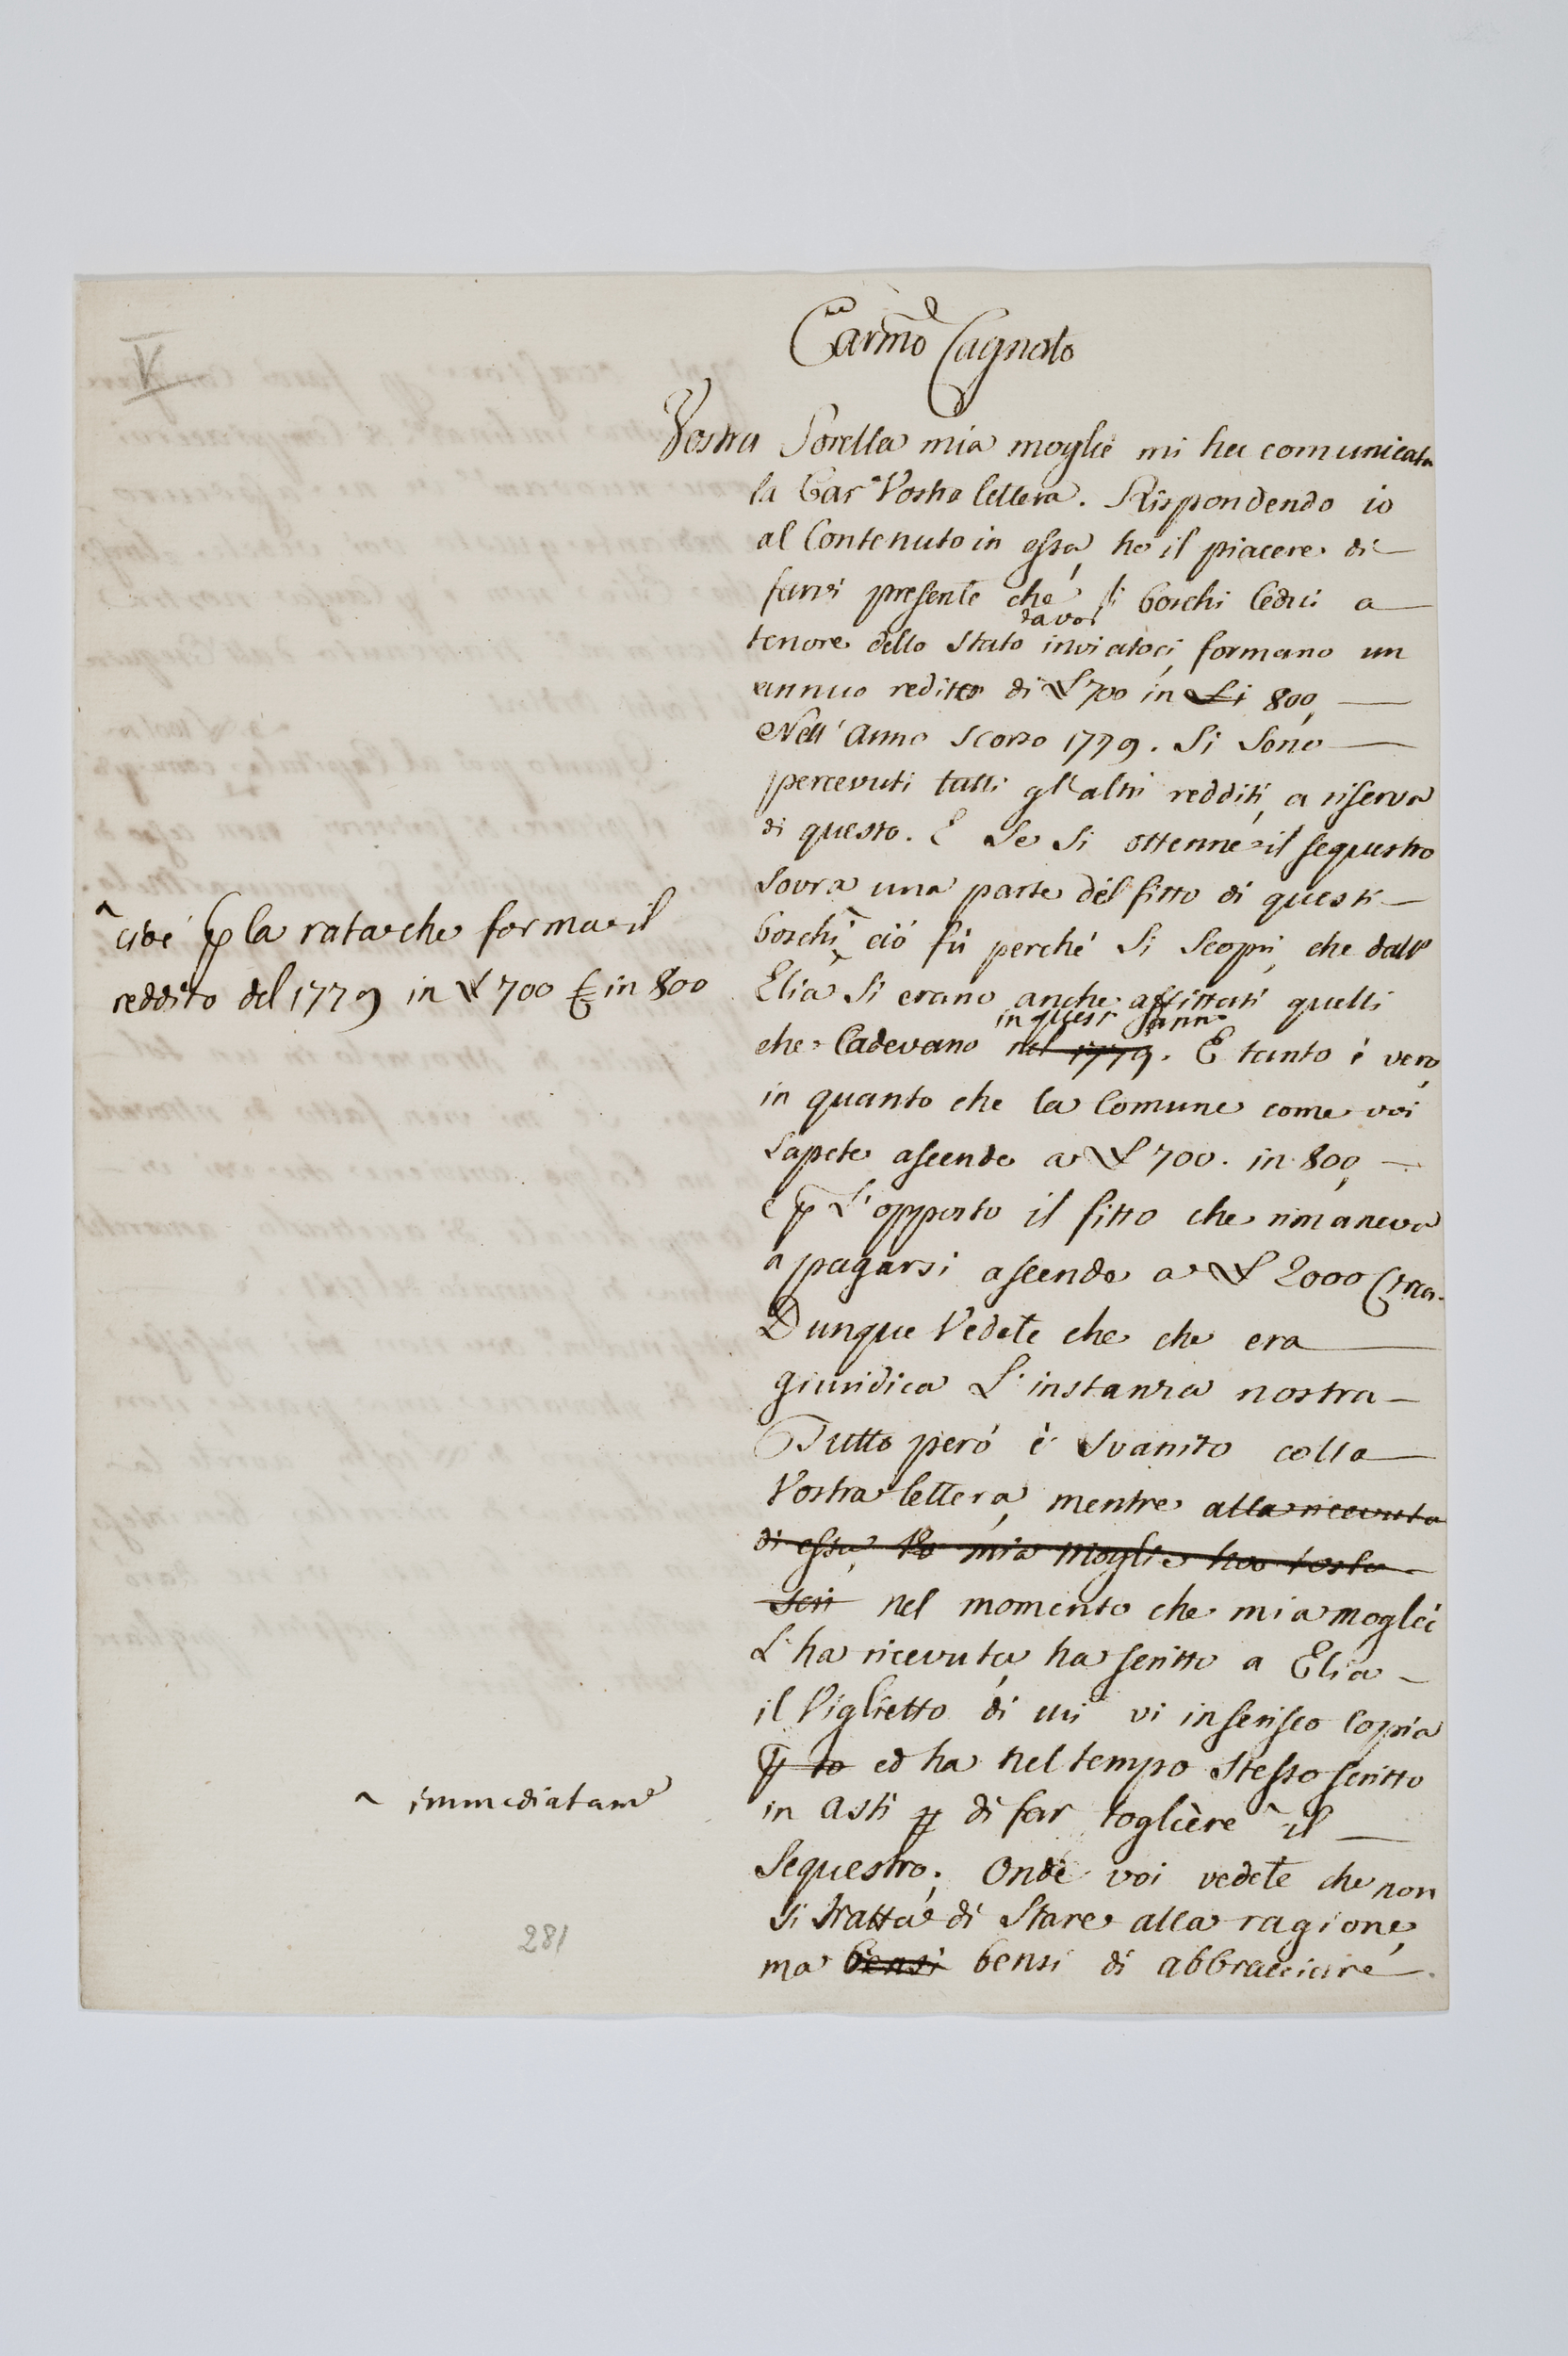 V
Carmo Cagnato
Vostra Sorella mia moglie mi ha comunicata
la Car.ª Vostra lettera. Rispondendo io
al Contenuto in essa, ho il piacere di
farvi presente che li boschi Cedui a
da voi
tenore dello Stato inviatoci, formano un
annuo reditto di £ 700 in Li 800,
Nell' Anno scorso 1779. Si Sono
percevuti tutti gl'altri redditi, a riserva
di questo. E Se Si ottenne il sequestro
Sovra una parte del fitto di questi
boschi ^ ció fù perché Si Scoprì, che dall'
^ cioé p la rata che forma il
reddito del 1779 in £ 700 in 800
Elia Si erano anche affittati quelli
in quest'anno
che Cadevano nel 1779. E tanto è vero,
in quanto che la Comune come voi
Sapete ascende a £ 700. in 800,
e p L'opposto il fitto che rimaneva
a pagarsi ascende a £ 2000 Circa.
Dunque Vedete che che era
giuridica L'instanza nostra
Tutto peró è Svanito colla
Vostra lettera, mentre alla ricevuta
di essa, mia moglie ha tosto
scri nel momento che mia moglie
L'ha ricevuta, ha scritto a Elia
il Viglietto di cui vi inserisco Copia
p to ed ha nel tempo Stesso scritto
in Asti p di far togliere ^ il
^ immediatame
Sequestro; Onde voi vedete che non
Si tratta di Stare alla ragione,
ma bensi bensi di abbracciare
281